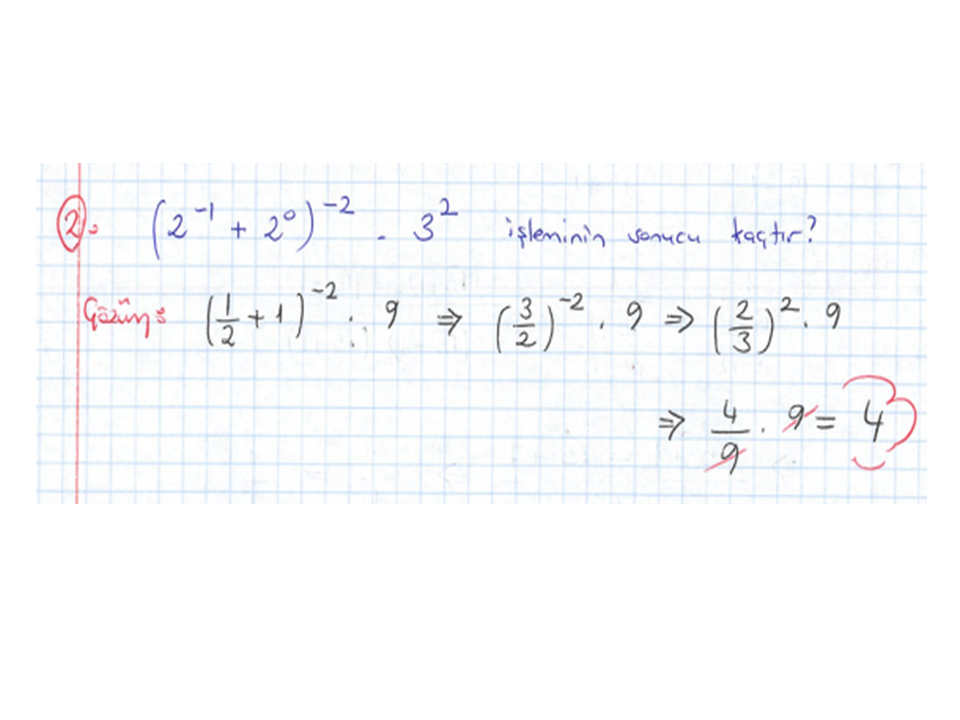 2. (2⁻¹ + 2⁰)⁻² . 3² işleminin sonucu kaçtır?
Çözüm: (1/2 + 1)⁻² . 9 ⇒ (3/2)⁻² . 9 ⇒ (2/3)² . 9
⇒ 4/9 . 9 = 4